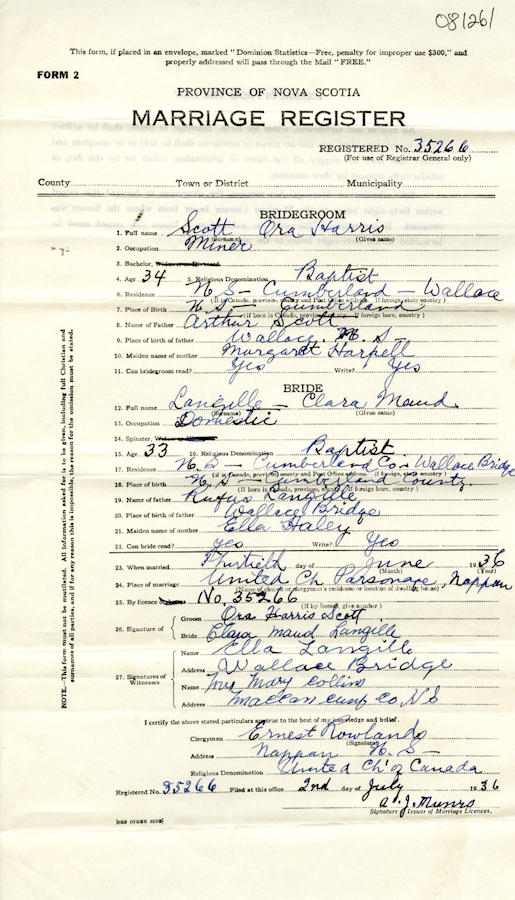 081261
This form, if placed in an envelope, marked "Dominion Statistics—Free, penalty for improper use $300," and
properly addressed will pass through the Mail "FREE."
FORM 2
PROVINCE OF NOVA SCOTIA
MARRIAGE REGISTER
REGISTERED No. 35266
(For use of Registrar General only)
County Town or District Municipality
BRIDEGROOM
1. Full name Scott Ora Harris
(Surname) (Given name)
2. Occupation Miner
3. Bachelor,
4. Age 34 5. Religious Denomination Baptist
6. Residence N S — Cumberland — Wallace
(If in Canada, province, county and Post Office address. if foreign, state country)
7. Place of Birth N.S — Cumberland
(If born in Canada, province, county, if foreign born, country)
8. Name of Father Arthur Scott
9. Place of birth of father Wallace. N. S —
10. Maiden name of mother Margaret Harpell
11. Can bridegroom read? Yes Write? Yes
BRIDE
12. Full name Langille — Clara Maud.
(Surname) (Given name)
13. Occupation Domestic
14. Spinster,
15. Age 33 16. Religious Denomination Baptist
17. Residence N. S — Cumberland Co — Wallace Bridge
(If in Canada, province, county and Post Office address. if foreign, state country)
18. Place of birth N. S — Cumberland County.
(If born in Canada, province, county, if foreign born, country)
19. Name of father Rufus Langille
20. Place of birth of father Wallace Bridge
21. Maiden name of mother Ella Haley
22. Can bride read? yes Write? Yes
23. When married Thirtieth day of June 1936
(Month) (Year)
24. Place of marriage United Ch Parsonage, Nappan
(Name of church or clergyman's residence or location of dwelling house)
25. By licence No. 35266
(If by license, give number)
26. Signature of
Groom Ora Harris Scott
Bride Clara maud Langille
27. Signatures of Witnesses
Name Ella Langille
Address Wallace Bridge
Name Mrs Mary Collins
Address Maccan Cumb Co, N S
I certify the above stated particulars are true to the best of my knowledge and belief.
Clergyman Ernest Rowlands
(Signature)
Address Nappan N. S —
Religious Denomination United Ch' of Canada
Registered No. 35266 Filed at this office 2nd day of July 1936
A. J. Munro
Signature Issuer of Marriage Licences.
[SEE OTHER SIDE]
NOTE.—This form must not be mutilated. All information asked for is to be given, including full Christian and
surnames of all parties, and if for any reason this is impossible, the reason for the omission must be stated.